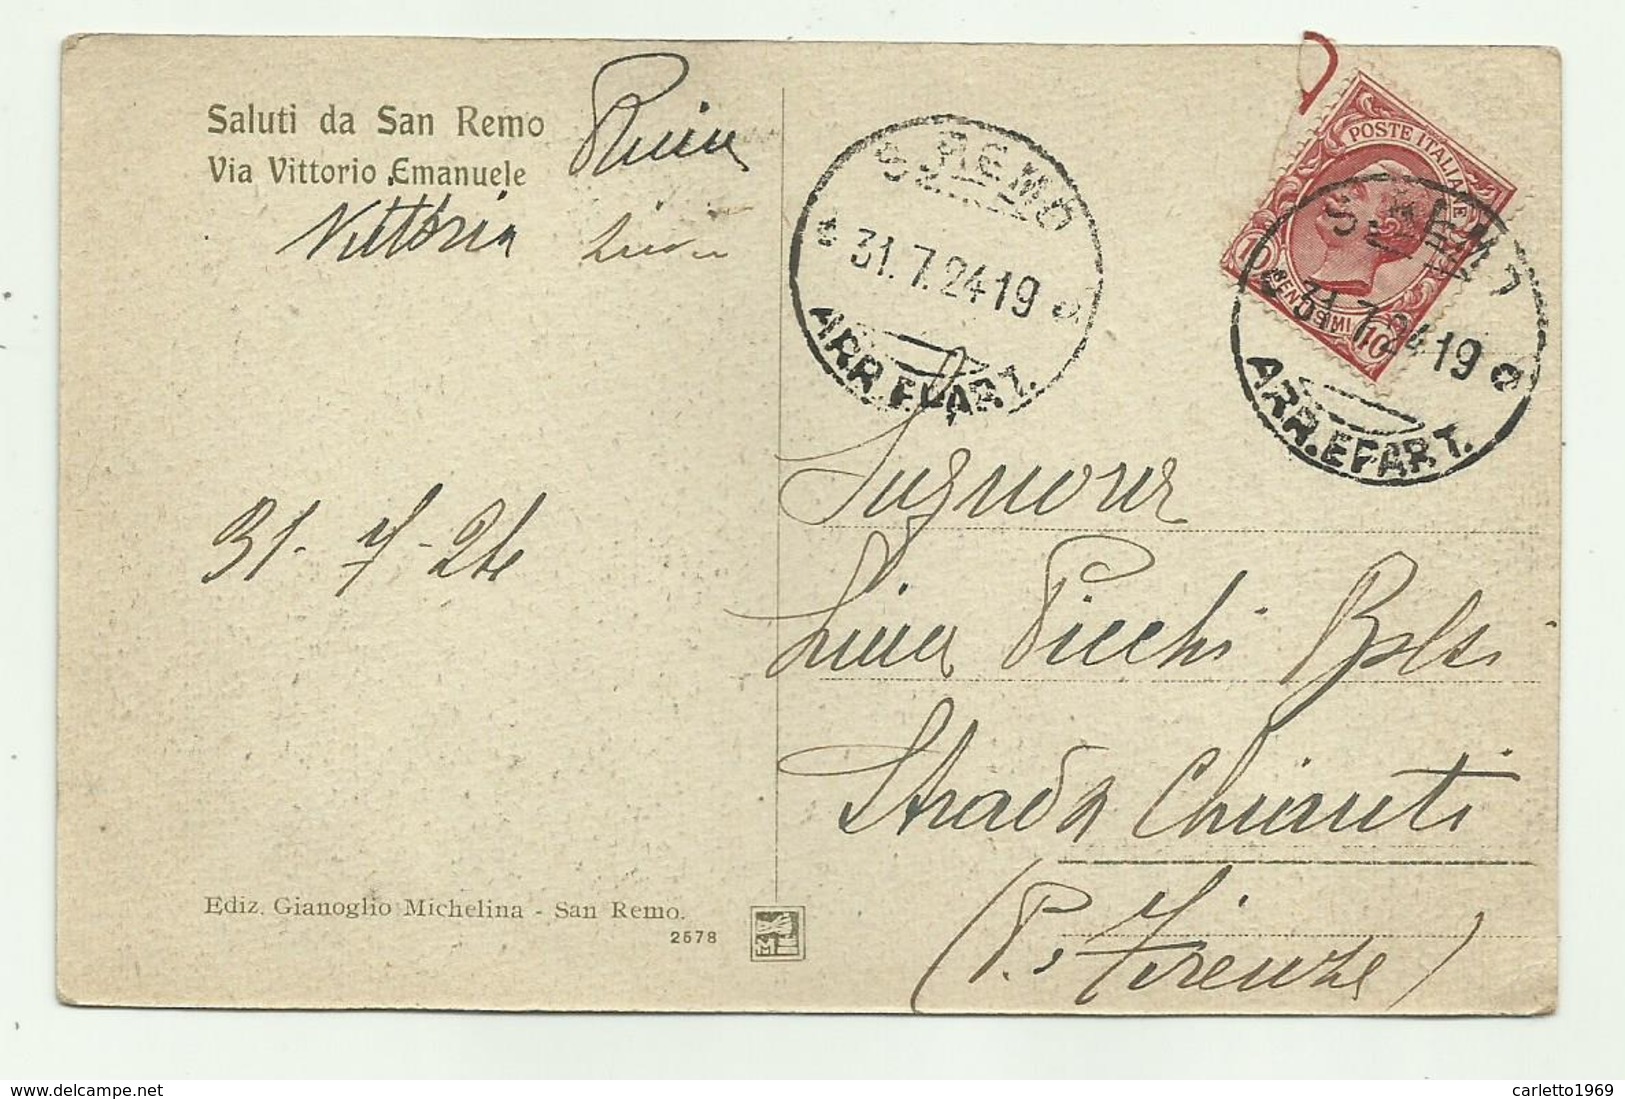 Saluti da San Remo
Via Vittorio Emanuele
Vittoria
31-7-24
S. REMO
31.7.24 19
ARR. E PART.
POSTE ITALIANE
10 CENTESIMI 10
S. REMO
31.7.24 19
ARR. E PART.
Signora
Lina Picchi
Strada Chianti
(P. Firenze)
Ediz. Gianoglio Michelina - San Remo.
2578
delcampe.net
carletto1969